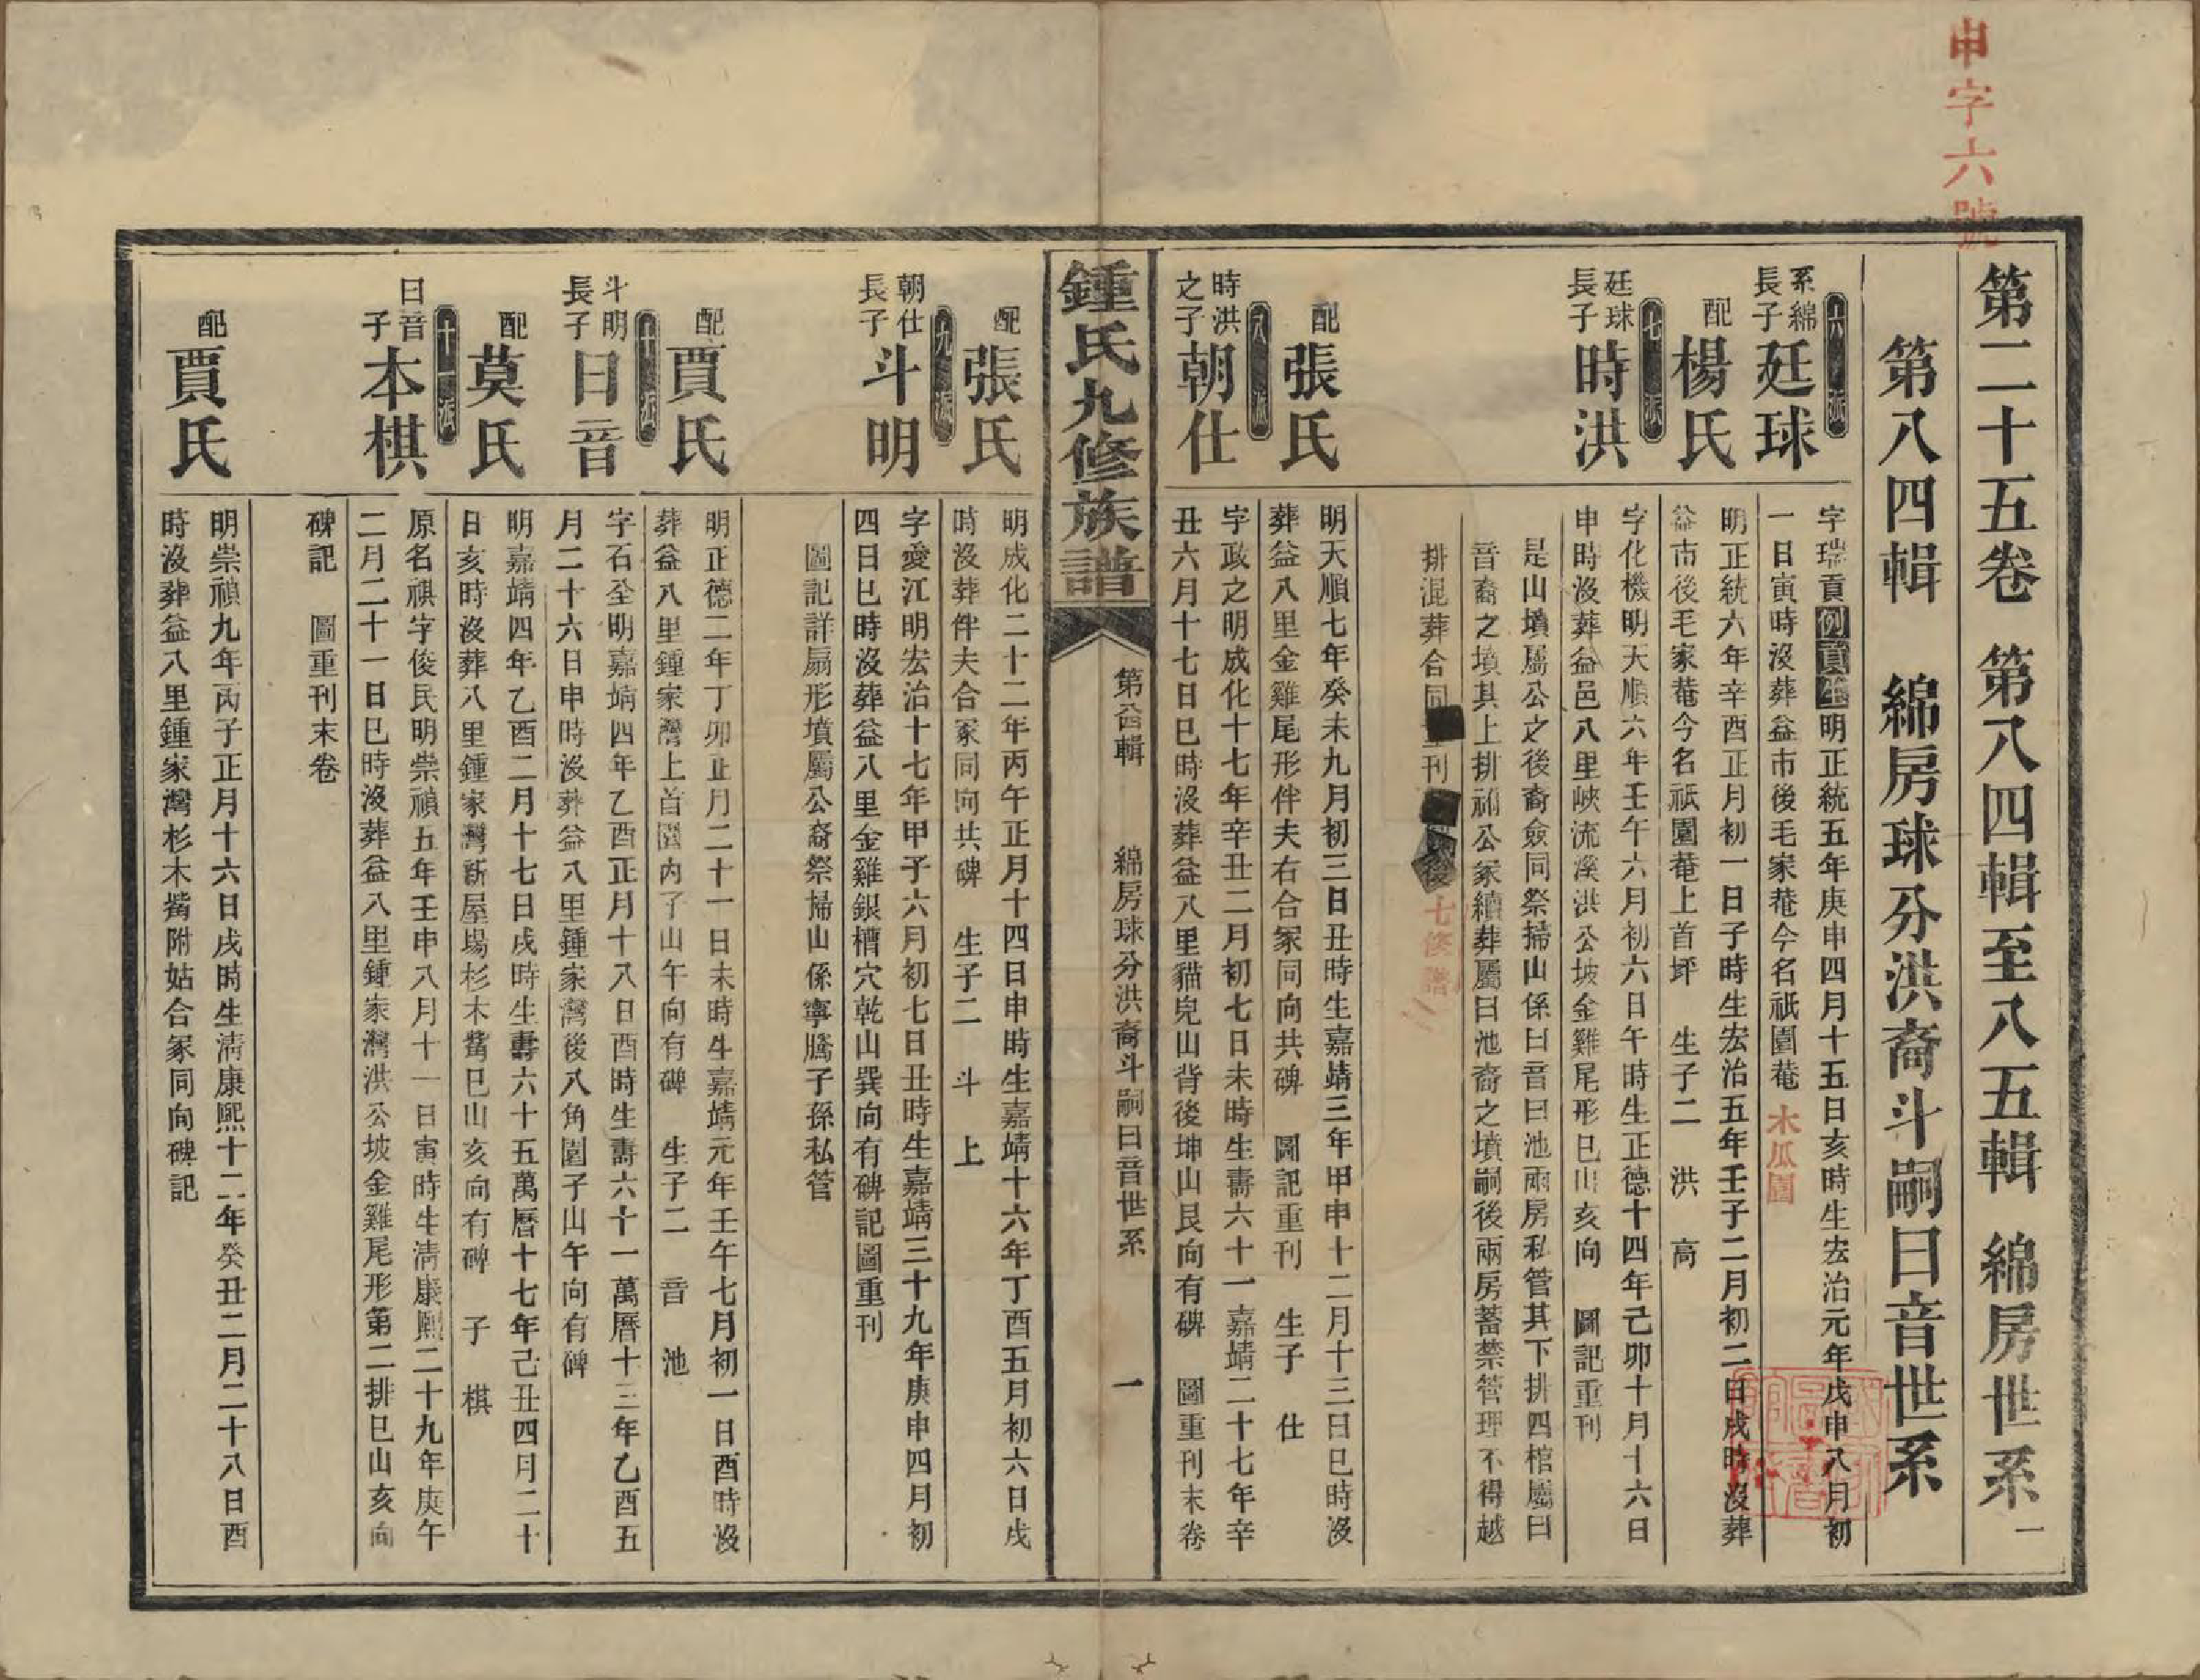 申字六號
第二十五卷　第八四輯至八五輯　綿房世系　一
第八四輯　綿房球分洪裔斗嗣曰音世系
六派
系綿長子
廷球
字瑞貢例貢生明正統五年庚申四月十五日亥時生宏治元年戊申八月初
一日寅時沒葬益市後毛家菴今名祇園菴
木瓜園
配楊氏
明正統六年辛酉正月初一日子時生宏治五年壬子二月初二日戌時沒葬
益市後毛家菴今名祇園菴上首坪　生子二　洪　高
七派
廷球長子
時洪
字化機明天順六年壬午六月初六日午時生正德十四年己卯十月十六日
申時沒葬益邑八里峽流溪洪公坡金雞尾形巳山亥向　圖記重刊
是山墳屬公之後裔僉同祭掃山係曰音曰池兩房私管其下排四棺屬曰
音裔之墳其上排祔公冢續葬屬曰池裔之墳嗣後兩房蓄禁管理不得越
排混葬合同重刊　後
七修譜
配張氏
明天順七年癸未九月初三日丑時生嘉靖三年甲申十二月十三日巳時沒
葬益八里金雞尾形伴夫右合冢同向共碑　圖記重刊　生子　仕
八派
時洪之子
朝仕
字政之明成化十七年辛丑二月初七日未時生壽六十一嘉靖二十七年辛
丑六月十七日巳時沒葬益八里貓兒山背後坤山艮向有碑　圖重刊末卷
鍾氏九修族譜
第八四輯　綿房球分洪裔斗嗣曰音世系　一
配張氏
明成化二十二年丙午正月十四日申時生嘉靖十六年丁酉五月初六日戌
時沒葬伴夫合冢同向共碑　生子二　斗　上
九派
朝仕長子
斗明
字愛江明宏治十七年甲子六月初七日丑時生嘉靖三十九年庚申四月初
四日巳時沒葬益八里金雞銀槽穴乾山巽向有碑記圖重刊
圖記詳扇形墳屬公裔祭掃山係寧騰子孫私管
配賈氏
明正德二年丁卯正月二十一日未時生嘉靖元年壬午七月初一日酉時沒
葬益八里鍾家灣上首園內子山午向有碑　生子二　音　池
十派
斗明長子
曰音
字石全明嘉靖四年乙酉正月十八日酉時生壽六十一萬曆十三年乙酉五
月二十六日申時沒葬益八里鍾家灣後八角園子山午向有碑
配莫氏
明嘉靖四年乙酉二月十七日戌時生壽六十五萬曆十七年己丑四月二十
日亥時沒葬八里鍾家灣新屋場杉木嘴巳山亥向有碑　子　棋
十一派
曰音子
本棋
原名祺字俊民明崇禎五年壬申八月十一日寅時生清康熙二十九年庚午
二月二十一日巳時沒葬益八里鍾家灣洪公坡金雞尾形第二排巳山亥向
碑記　圖重刊末卷
配賈氏
明崇禎九年丙子正月十六日戌時生清康熙十二年癸丑二月二十八日酉
時沒葬益八里鍾家灣杉木嘴附姑合冢同向碑記